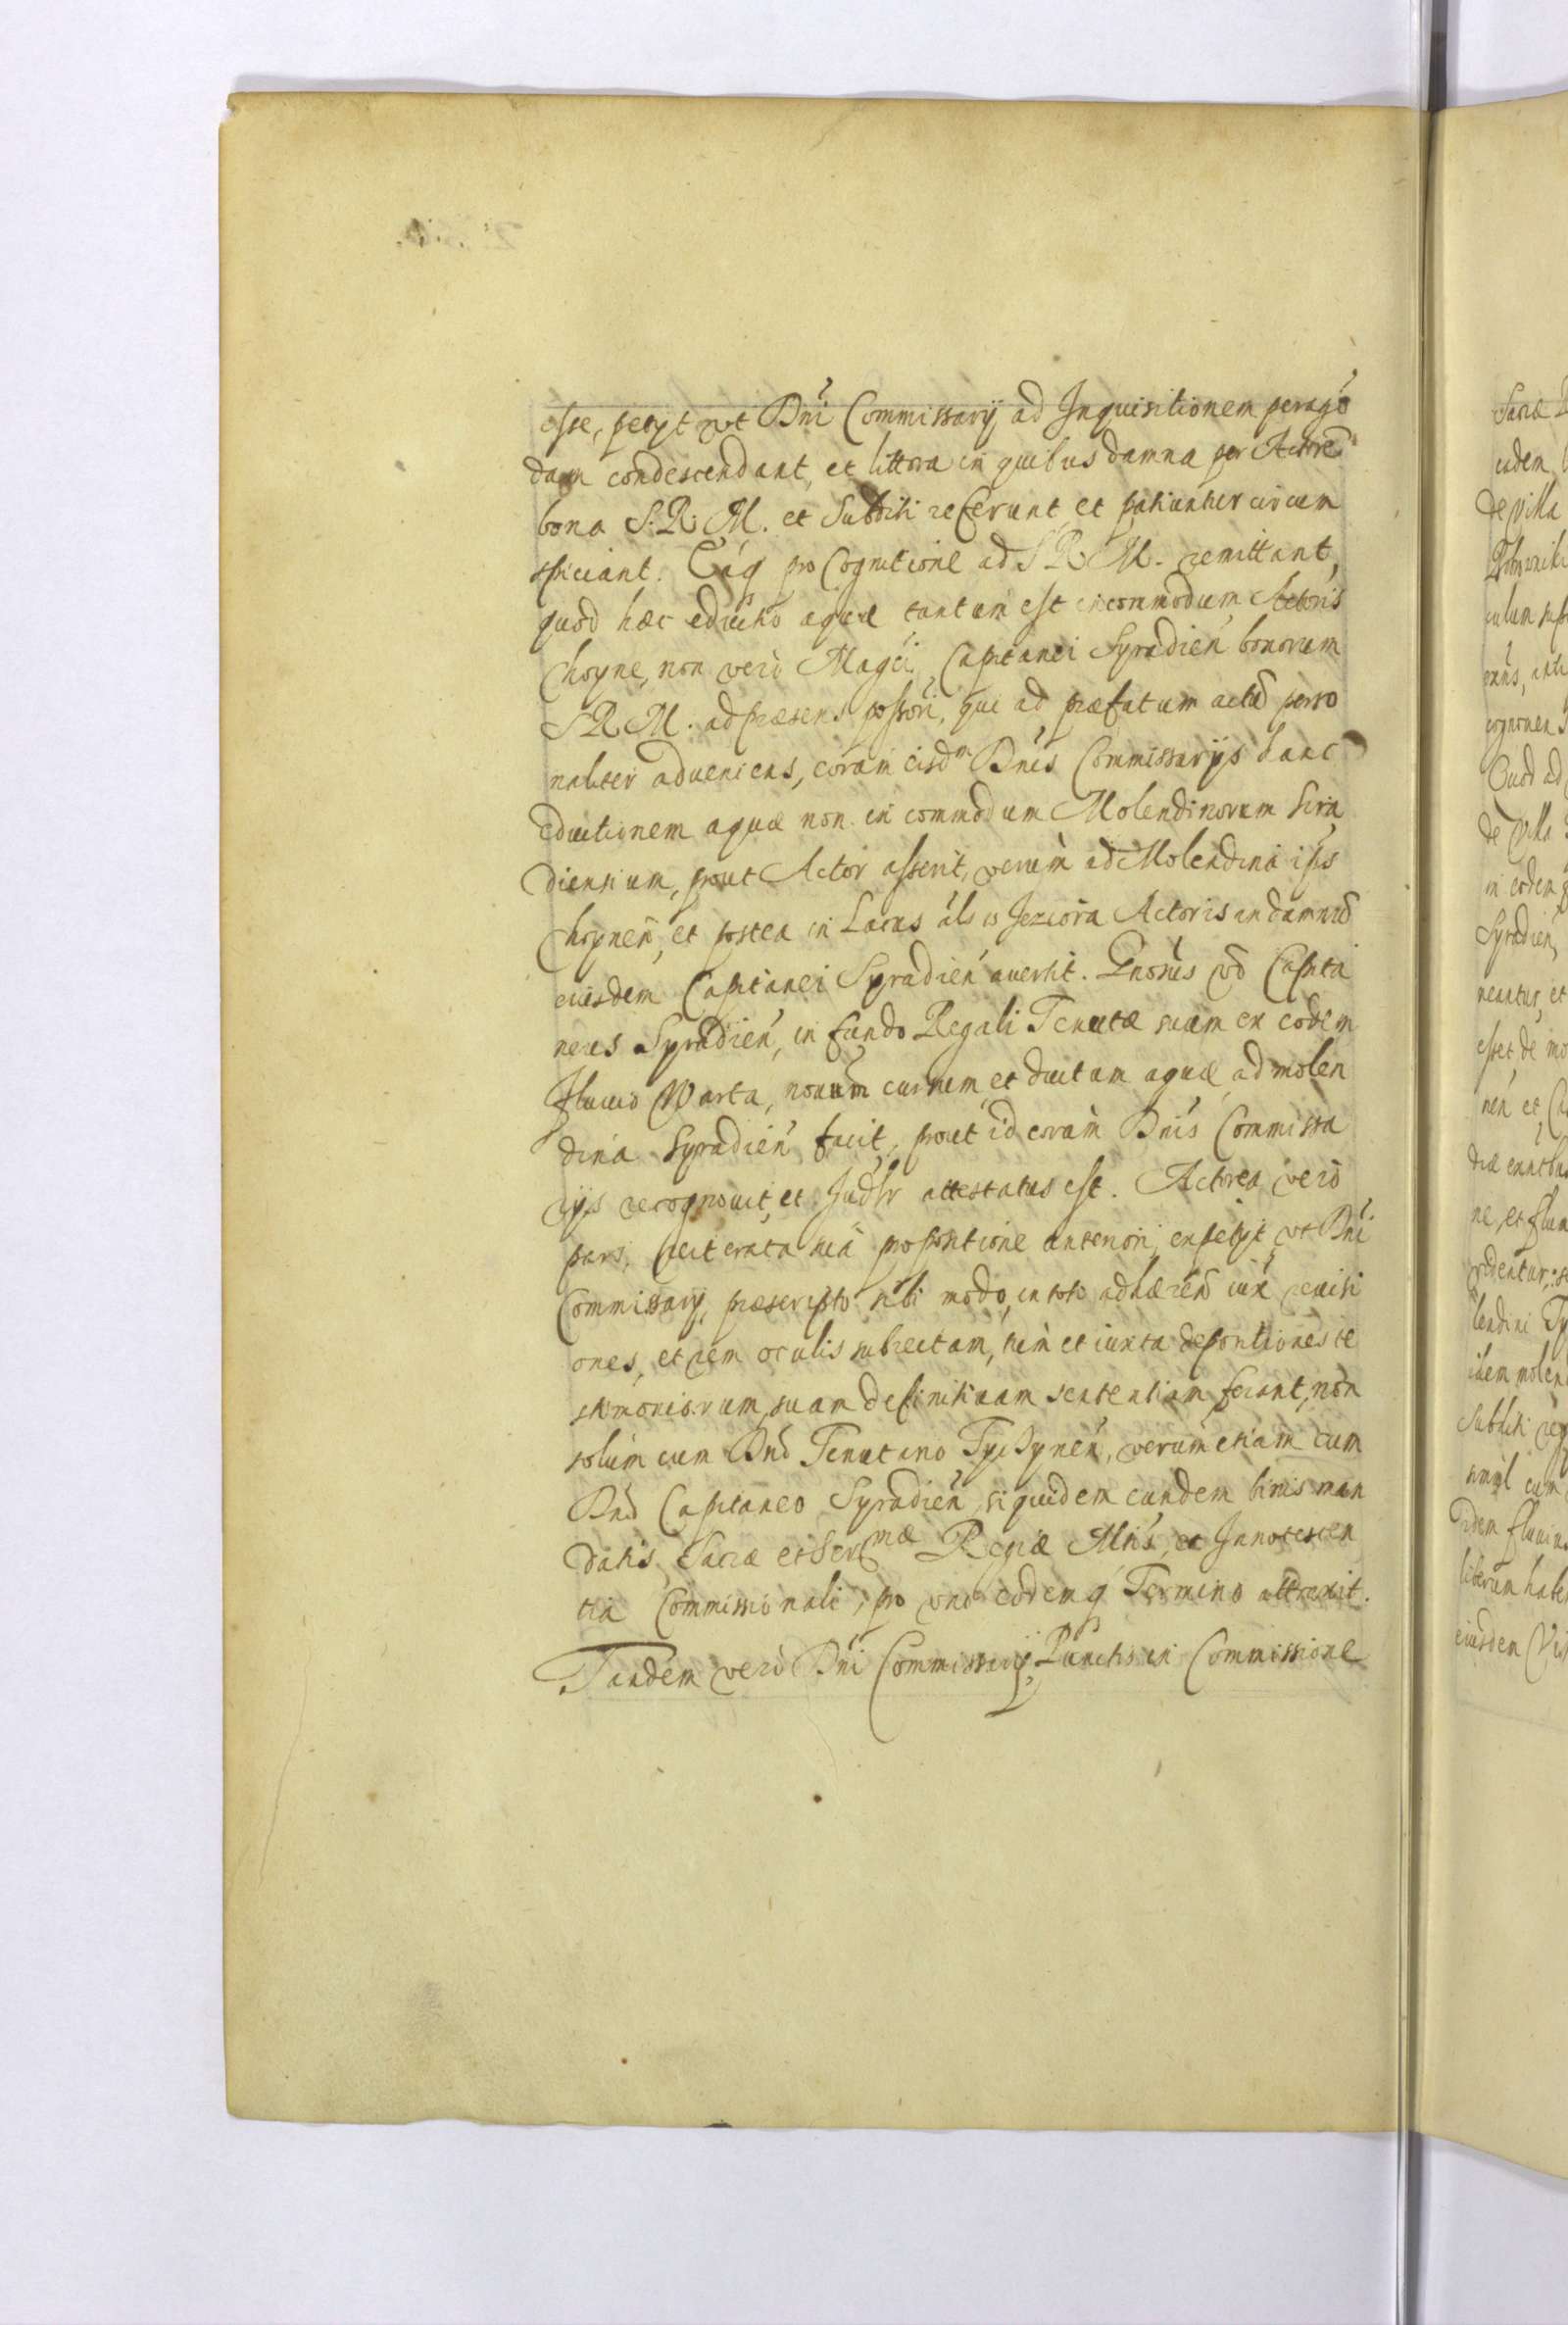 esse, petyt ut Dni Commissarij ad Inquisitionem peragē
dam condescendant, et littora in quibus damna per Actorē
bona S. R. M. et Subditi referunt et patiuntur circum
spiciant. Eaq pro Cognitione ad S R. M. remittant,
quod hæc eductio aquæ tantum est in commodum Actoris
Choyne, non verò Magci Capitanei Syradien bonorum
S R M. ad præsens possoris, qui ad præfatum actū perso
naliter adueniens, coram eisdm Dnis Commissarijs hanc
eductionem aquæ non in commodum Molendinorum Sira
diensium, prout Actor asserit, verum ad Molendina ipsius
Choynen, et postea in Lacus als w Jeziora Actoris in damnū
eiusdem Capitanei Syradien auertit. Gnosus vō Capita
neus Syradien, in fundo Regali Tenutæ suam ex eodem
fluuio Warta, nouum cursum et ductum aquæ ad molen
dina Syradien facit, prout id coram Dnis Commissa
rijs recognouit, et Judlr attestatus est. Actorea verò
pars, reiterata sua propositione anteriori, expetyt ut Dni
Commissarij, præscripto sibi modo, in toto adhærendō iux reuisi
ones, et rem oculis subiectam, tùm et iuxta depositiones te
stimoniorum, suam definitiuam sententiam ferant, nōn
solùm cum Dnō Tenutario Tyczynen, verùm etiam cum
Dnō Capitaneo Syradien, siquidem eundem binis man
datis Sacræ et Sermæ Regiæ Mtis, et Innotescen
tia Commissionali, pro uno eodemq Termino attraxit.
Tandem verò Dni Commissarij, Punctis in Commissione